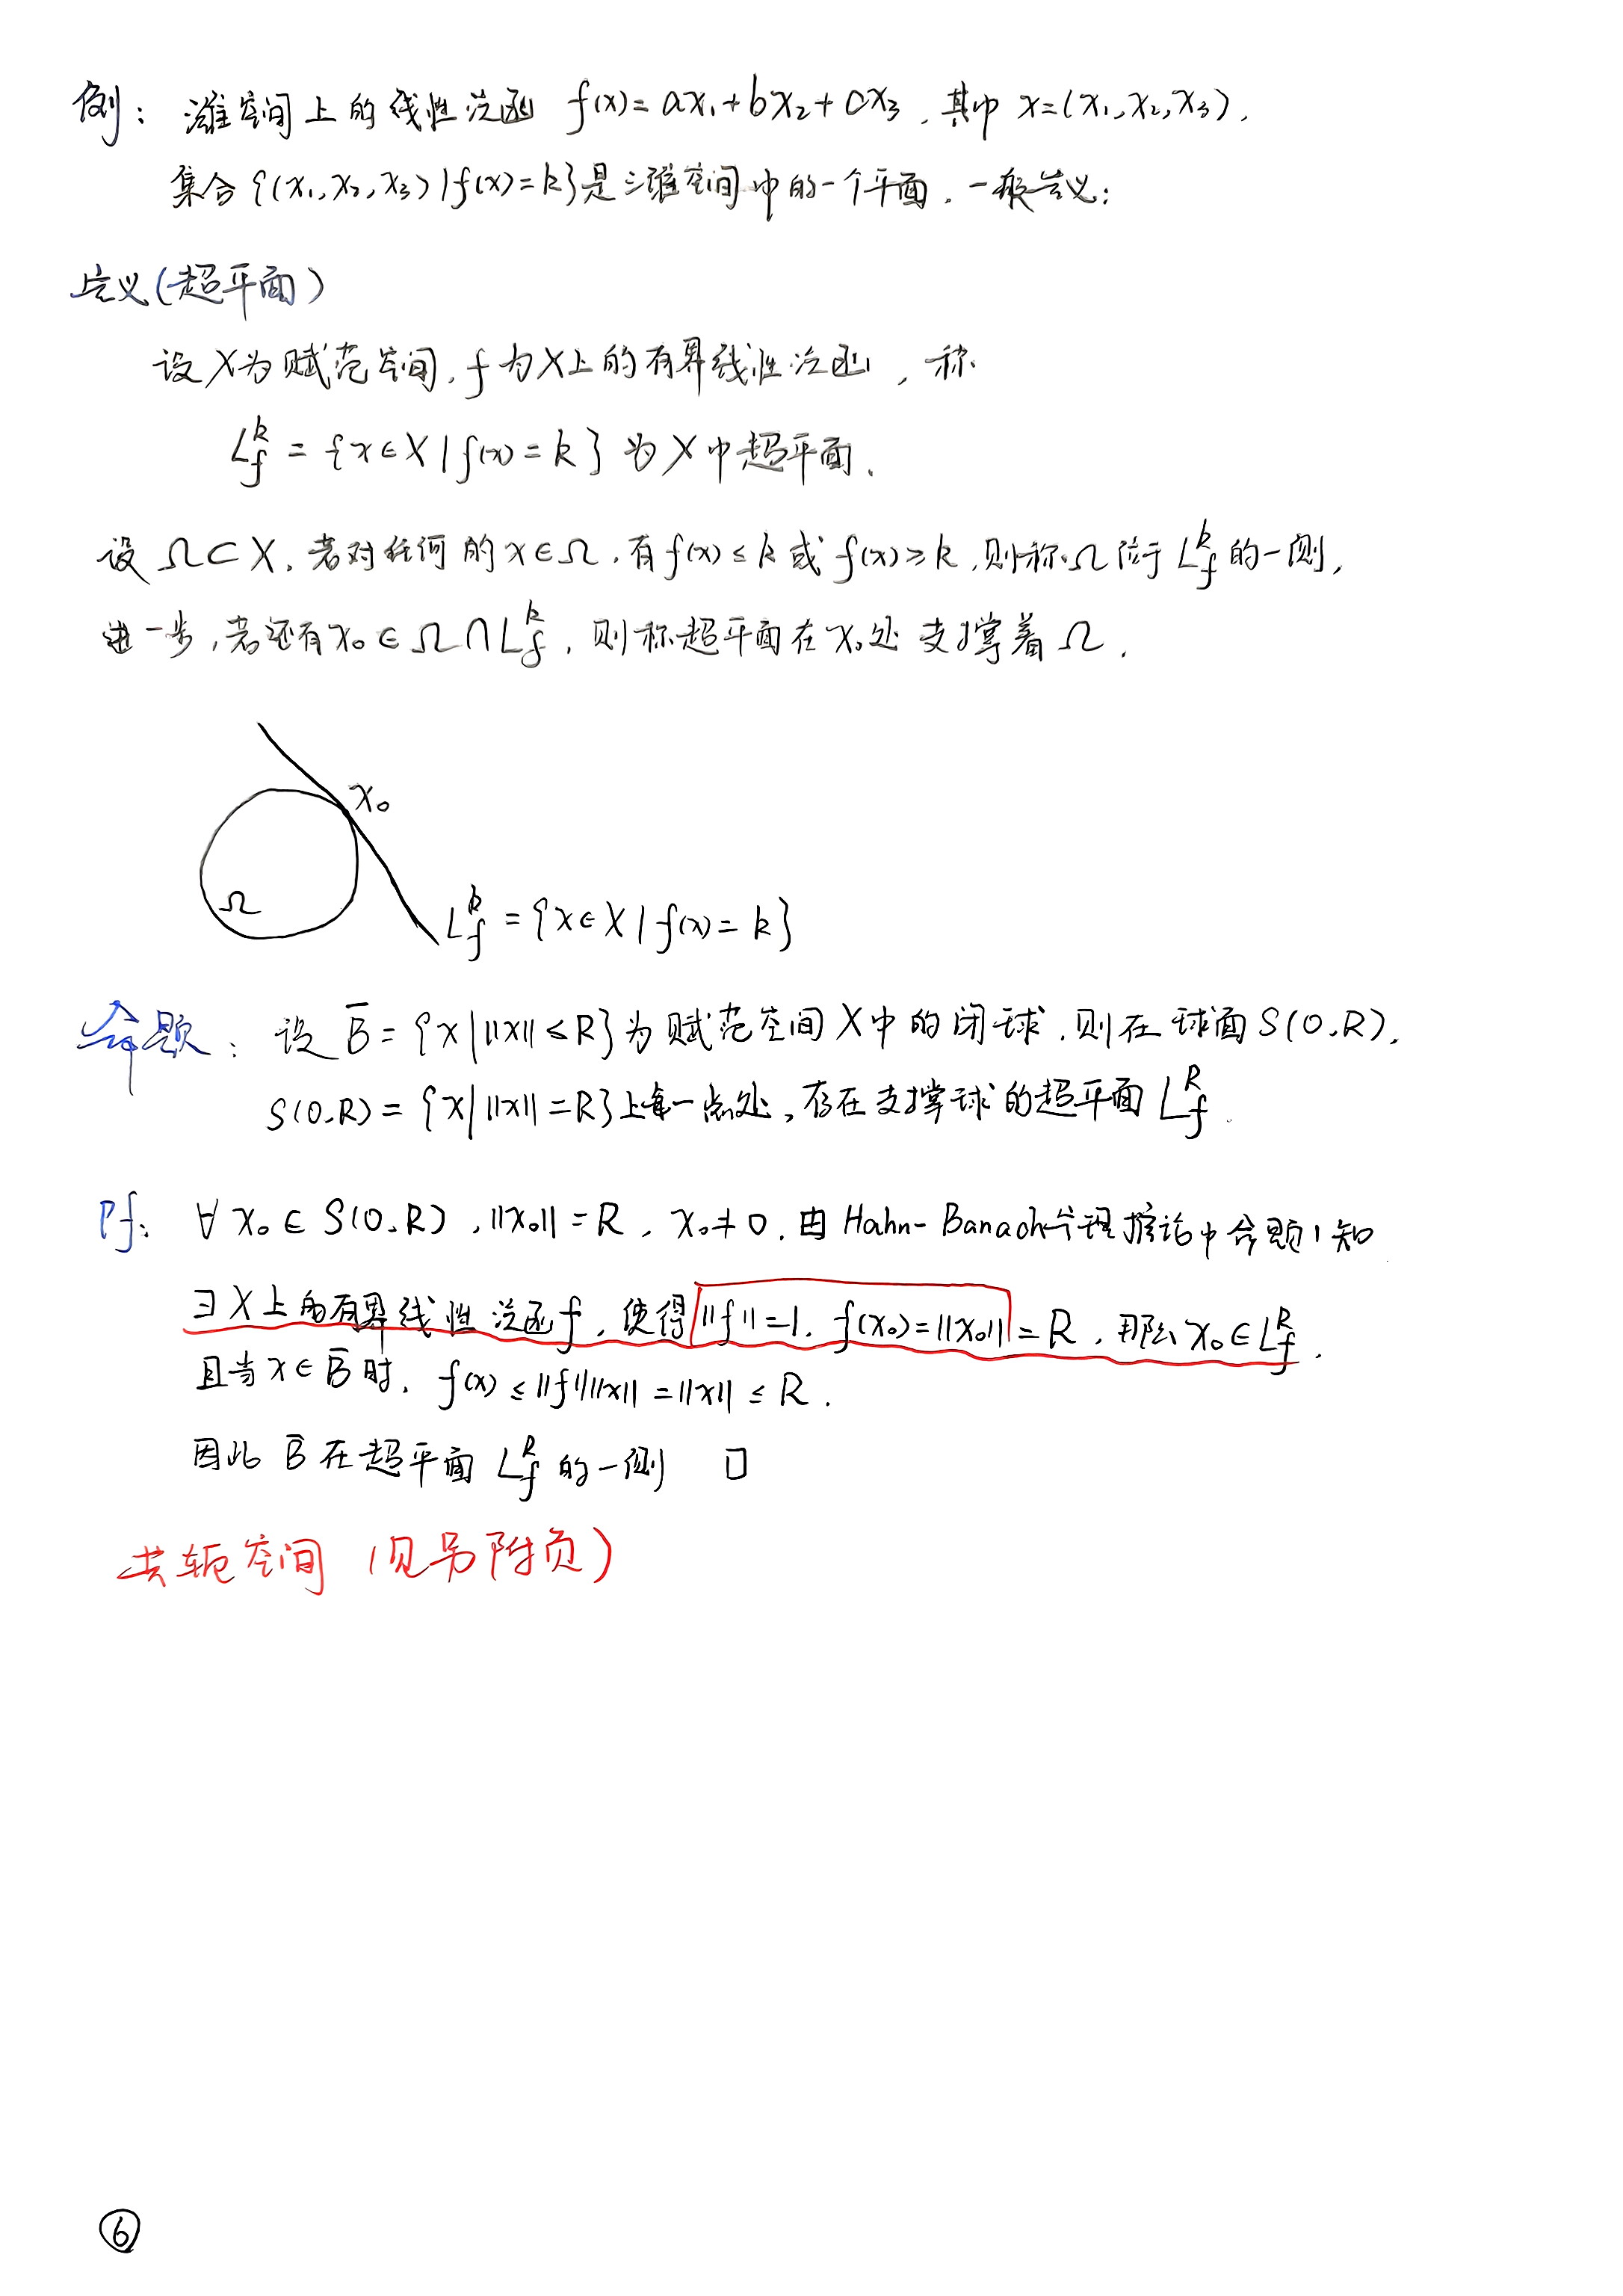 例： 三维空间上的线性泛函 f(x)=ax₁+bx₂+cx₃，其中 x=(x₁,x₂,x₃)，
集合{(x₁,x₂,x₃)|f(x)=k}是三维空间中的一个平面．一般定义：
定义(超平面)
设X为赋范空间，f为X上的有界线性泛函，称
L_f^k = {x∈X|f(x)=k} 为X中超平面．
设Ω⊂X，若对任何的x∈Ω，有f(x)≤k或f(x)≥k，则称Ω位于L_f^k的一侧，
进一步，若还有x₀∈Ω∩L_f^k，则称超平面在x₀处支撑着Ω．
x₀
Ω
L_f^k = {x∈X|f(x)=k}
命题： 设B̄={x|‖x‖≤R}为赋范空间X中的闭球，则在球面S(0,R)，
S(0,R)={x|‖x‖=R}上每一点处，存在支撑球的超平面L_f^R．
Pf： ∀x₀∈S(0,R)，‖x₀‖=R，x₀≠0．由Hahn-Banach定理推论中命题1知
∃X上的有界线性泛函f，使得‖f‖=1，f(x₀)=‖x₀‖=R，那么x₀∈L_f^R．
且当x∈B̄时，f(x)≤‖f‖‖x‖=‖x‖≤R．
因此B̄在超平面L_f^R的一侧 □
共轭空间（见另附页）
⑥